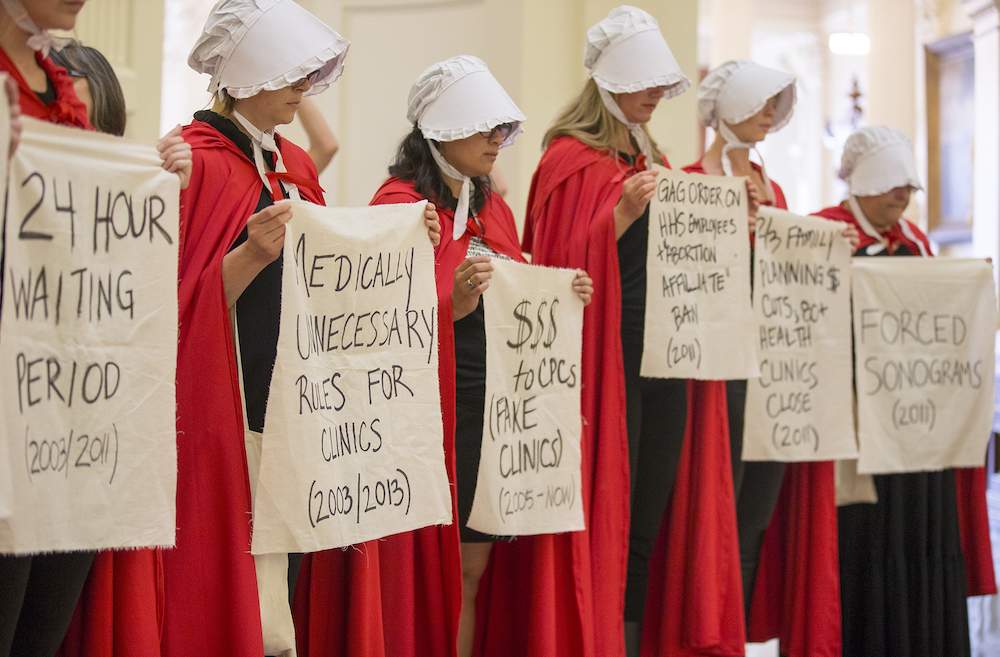 24 HOUR
WAITING
PERIOD
(2003/2011)
MEDICALLY
UNNECESSARY
RULES FOR
CLINICS
(2003/2013)
$$$
to CPCs
(FAKE
CLINICS)
(2005-NOW)
GAG ORDER ON
HHS EMPLOYEES
+ "ABORTION
AFFILIATE"
BAN
(2011)
2/3 FAMILY
PLANNING $
CUTS, 80+
HEALTH
CLINICS
CLOSE
(2011)
FORCED
SONOGRAMS
(2011)